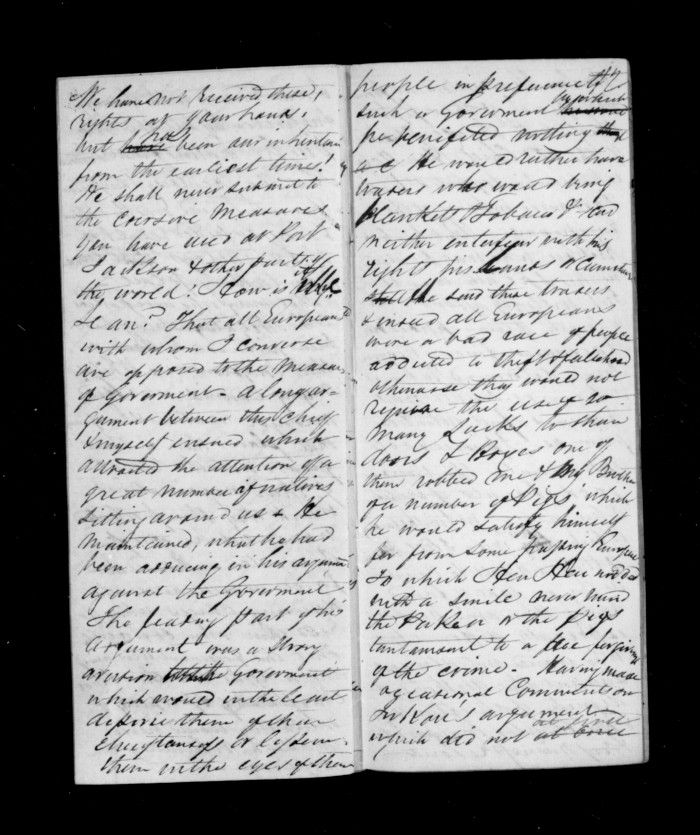 We have not received these,
rights at your hands.
but have has been our intention
from the earliest time!
We shall never submit to
the coersive measures
you have used at Port
Jackson & other parts of
the world! How is it
That all Europeans
with whom I converse
are opposed to the measures
of Goverment - a long ar-
gument between this Chief
& myself ensued which
attracted the attention of a
great number of natives
sitting around us & He
maintained, what he had
been adducing in his argument
against the Goverment
The leading part of his
argument was a strong
aversion to the Goverment
which would in the least
deprive them of their
chieftanships or lessen
them in the eyes of their
people in preference to
such a Goverment by which
he benifited nothing
He would rather have
traders who would bring
Blankets & Tobacco & and
neither interfere with his
rights his lands or Customs
still he said these traders
& indeed all Europeans
were a bad race of people
addicted to theft & falsehood
otherwise they would not
require the use of so
many Locks to their
doors & Boxes one of
them robbed me & my Brother
of a number of Pigs, which
he would satisfy himself
for from some passing European
To which Heu Heu nodded
with a smile never mind
the Pakea or the Pigs
tantamount to a free forgiving
of the crime. Having made
ocasional Comments on
argument
which did not at once